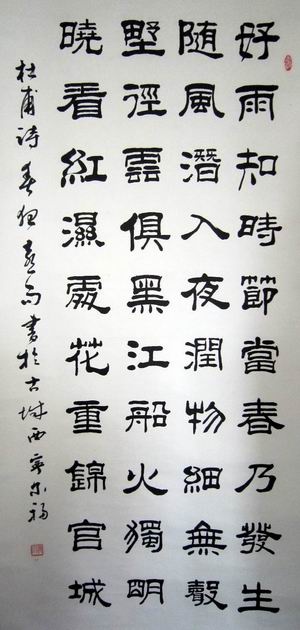 好雨知時節當春乃發生
随風潛入夜潤物細無聲
墅徑雲俱黑江船火獨明
曉看紅濕處花重錦官城
杜甫詩春夜喜雨書於古城西寧